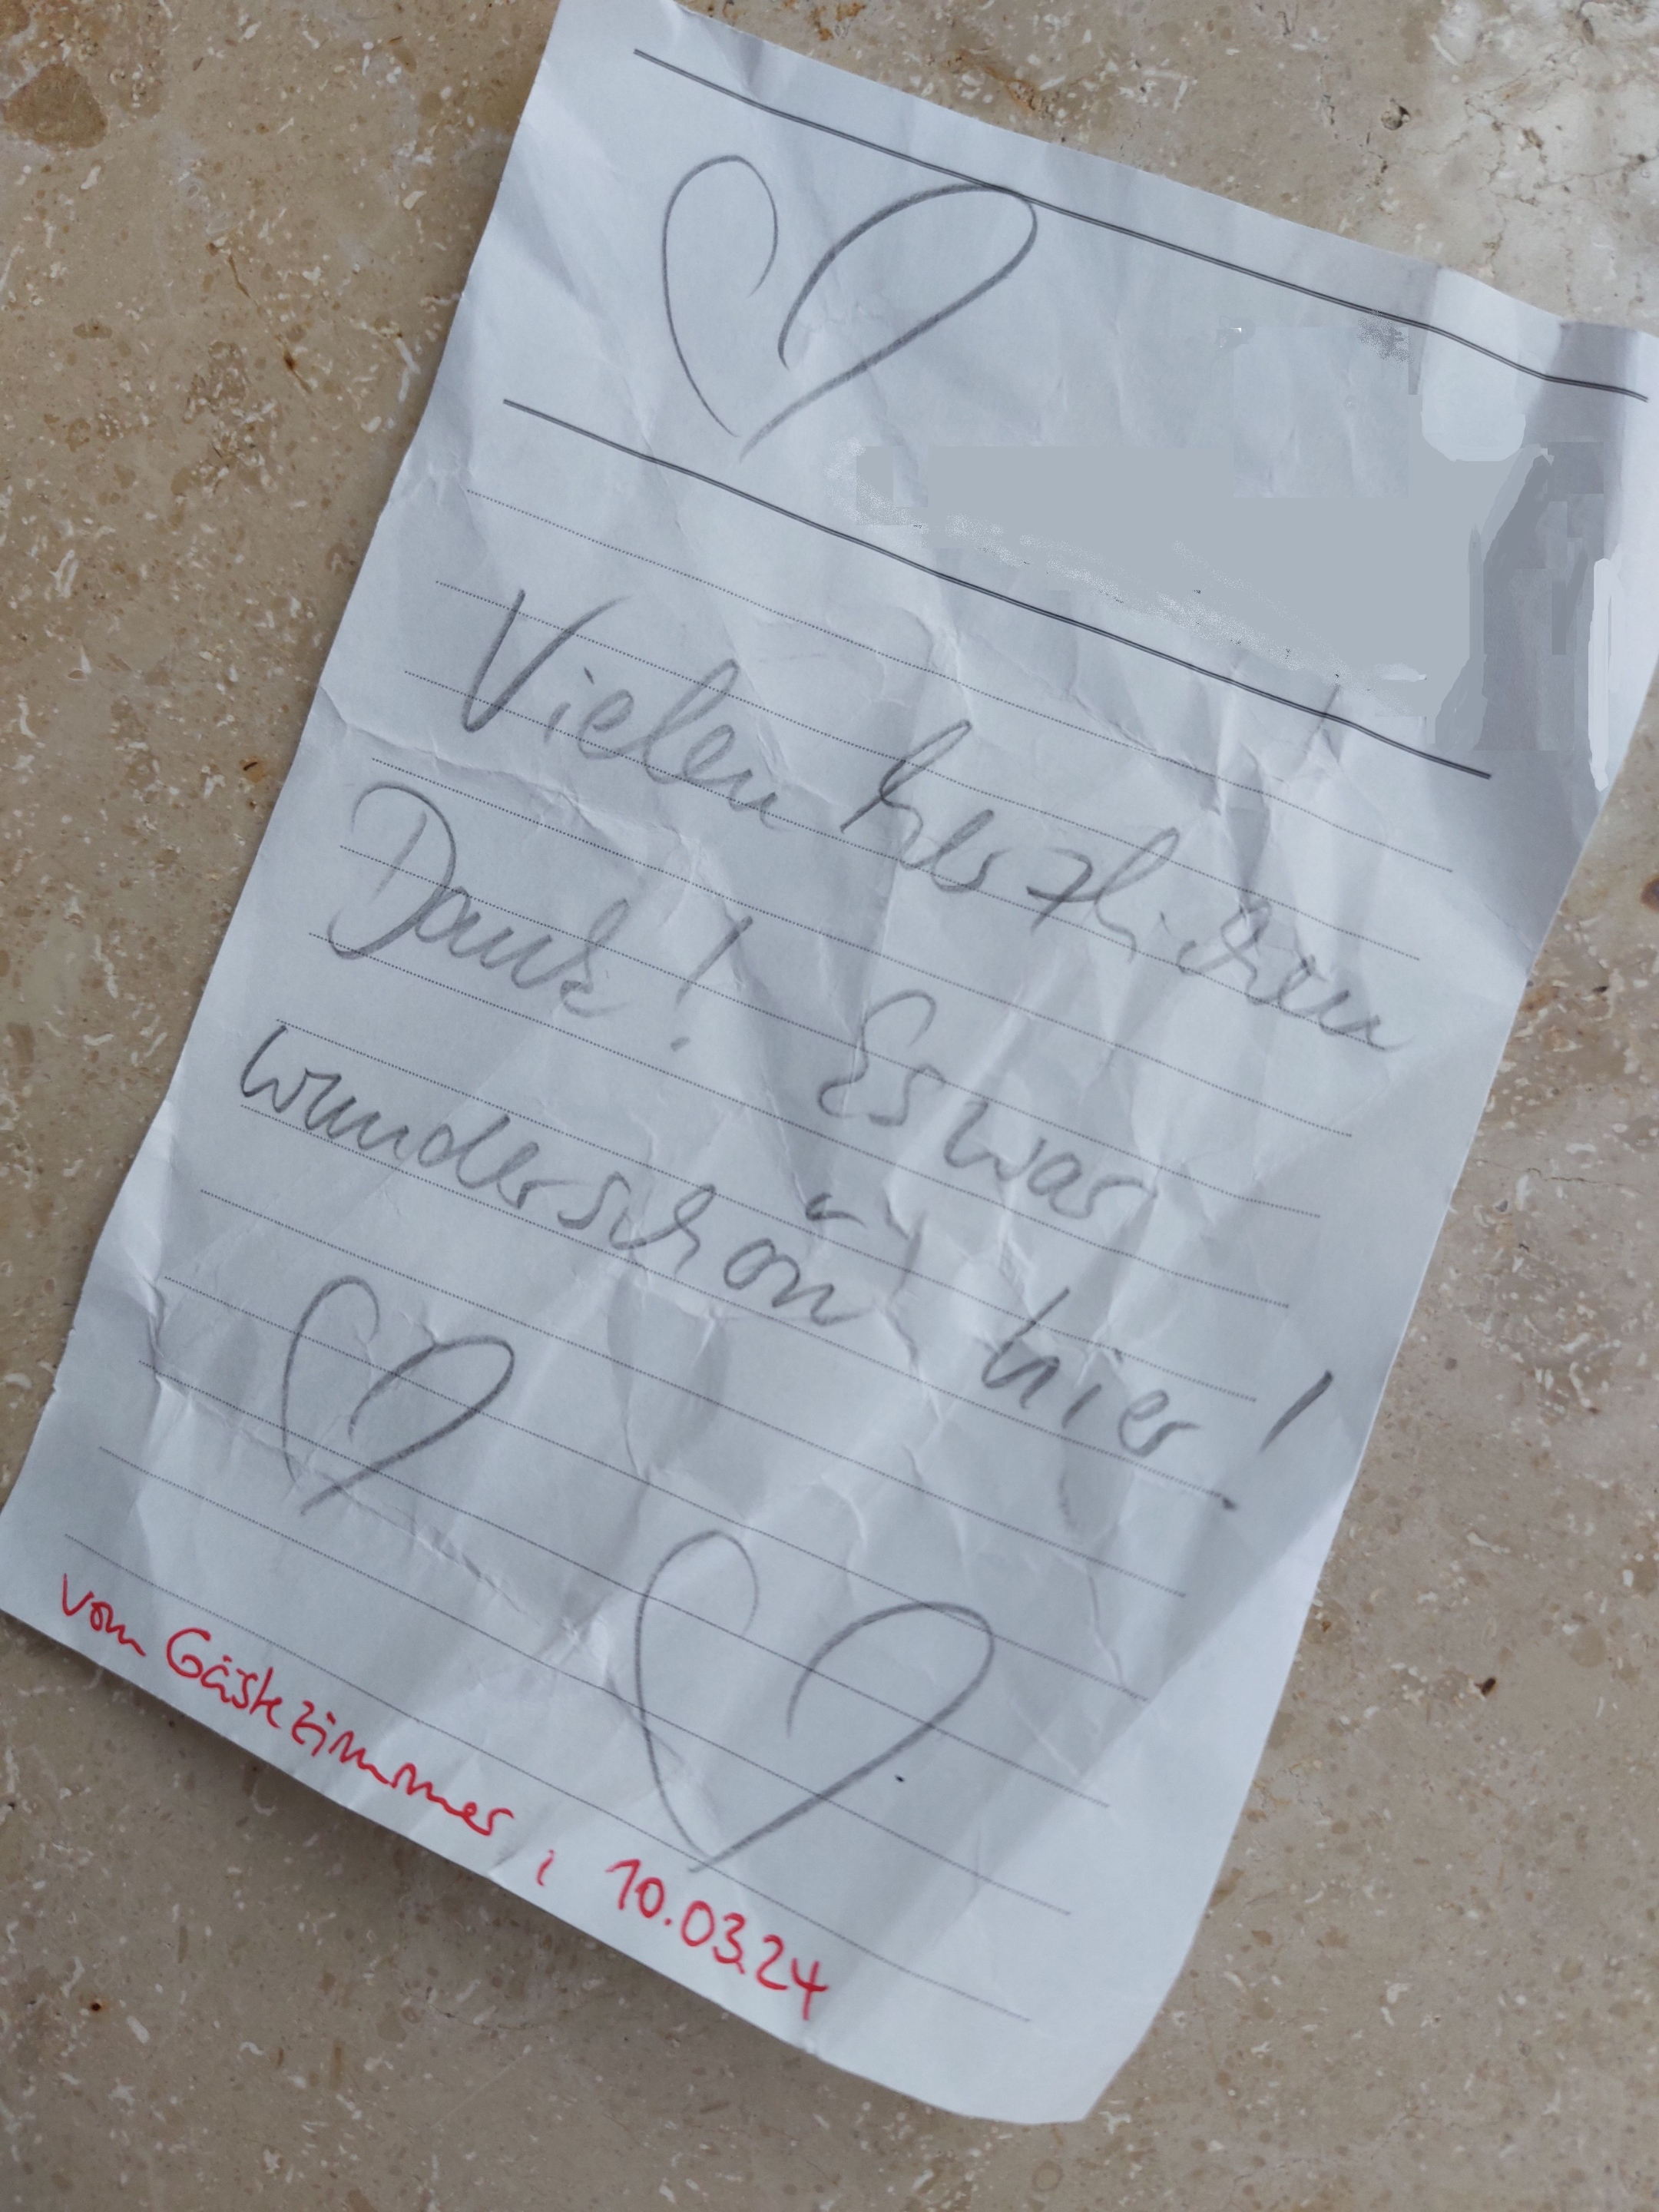 Vielen herzlichen
Dank! Es war
wunderschön hier!
vom Gästezimmer, 10.03.24